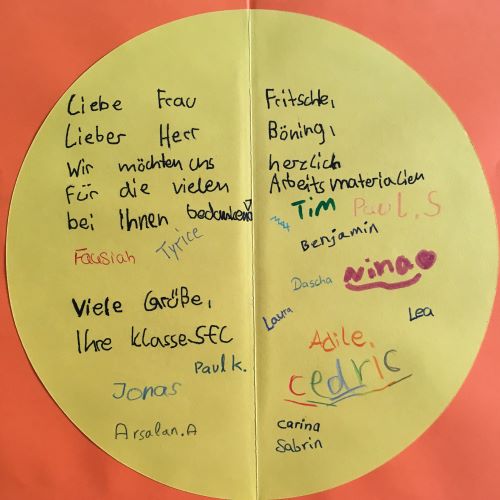 Liebe Frau Fritschle,
Lieber Herr Böning,
Wir möchten uns herzlich
Für die vielen Arbeitsmaterialien
bei Ihnen bedanken
Tim Paul.S
Max
Tyrice Benjamin
Fausiah
Nina
Dascha
Viele Grüße,
Laura Lea
Ihre Klasse 5EC
Adile.
Paul K.
Cedric
Jonas
Carina
Arsalan.A
Sabrin